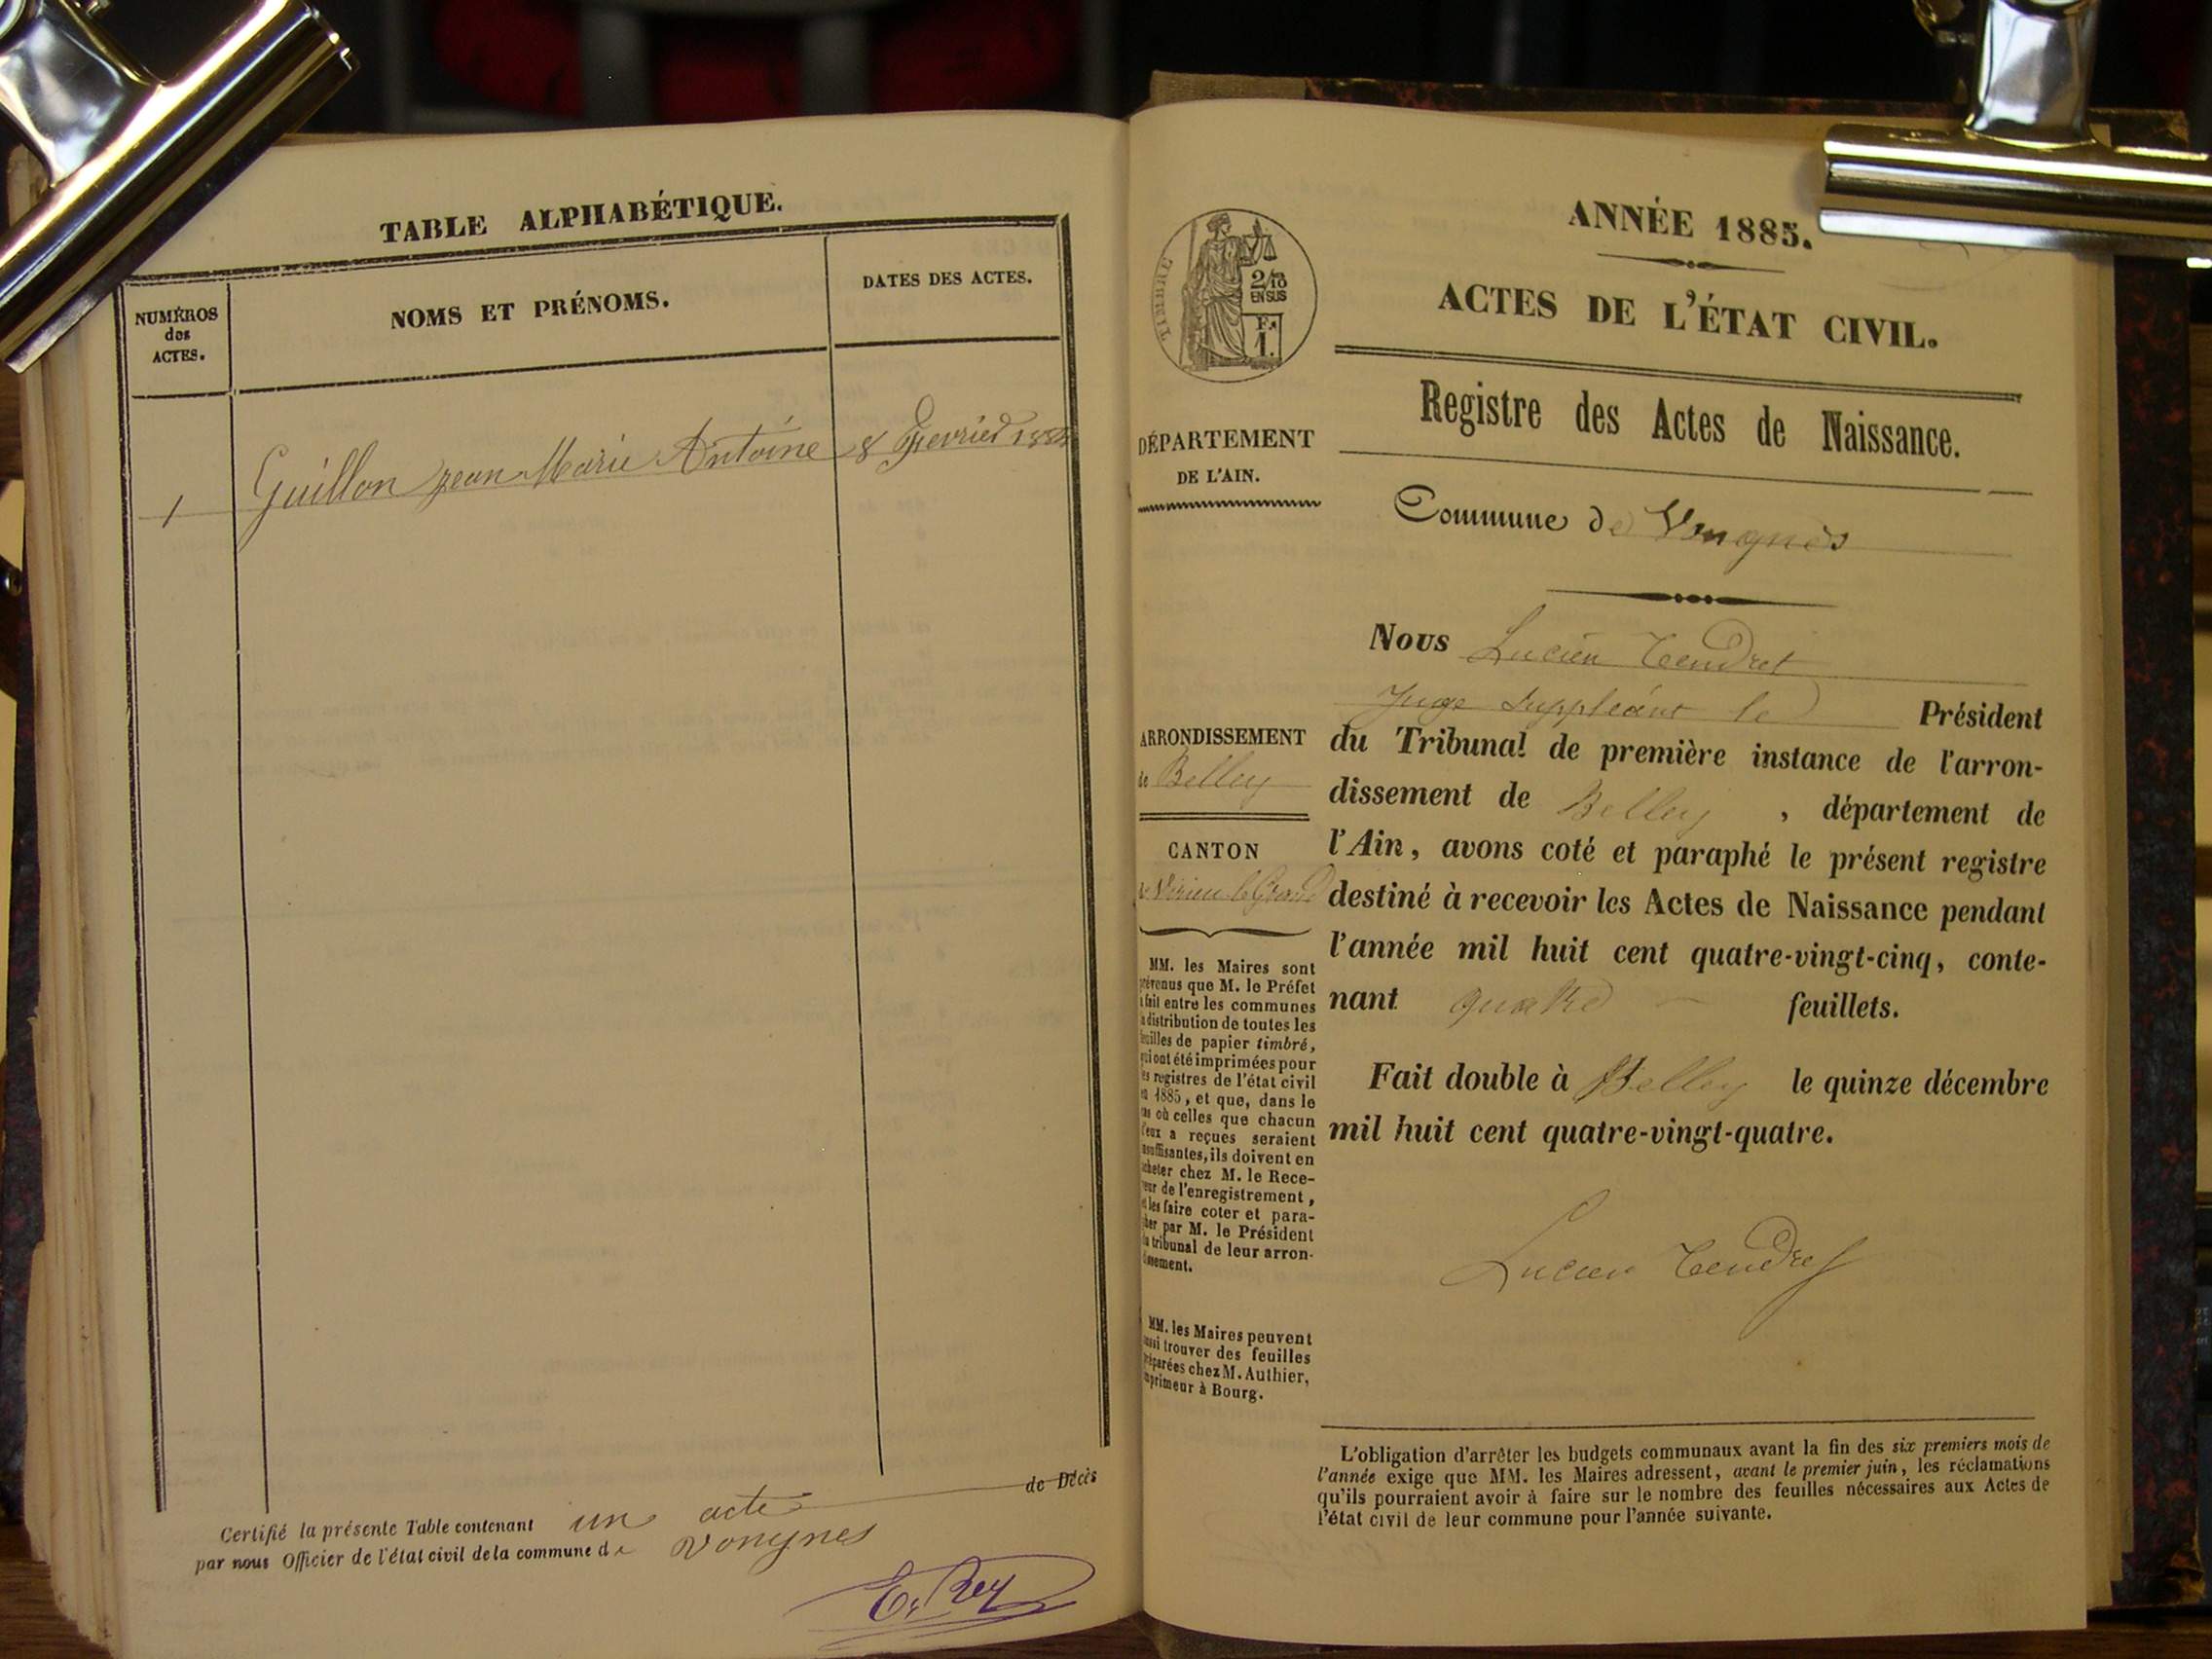 TABLE ALPHABÉTIQUE.
NUMÉROS
des
ACTES.
NOMS ET PRÉNOMS.
DATES DES ACTES.
1 Guillon jean Marie Antoine 8 fevrier 1884
de Décès
Certifié la présente Table contenant un acte
par nous Officier de l'état civil de la commune de Vongnes
E. Rey
ANNÉE 1885.
ACTES DE L'ÉTAT CIVIL.
TIMBRE
2/10
EN SUS
F.
1.
DÉPARTEMENT
DE L'AIN.
Registre des Actes de Naissance.
Commune de Vongnes
Nous Lucien Tendret
Juge Suppléant le Président
du Tribunal de première instance de l'arron-
dissement de Belley, département de
l'Ain, avons coté et paraphé le présent registre
destiné à recevoir les Actes de Naissance pendant
l'année mil huit cent quatre-vingt-cinq, conte-
nant quatre feuillets.
Fait double à Belley le quinze décembre
mil huit cent quatre-vingt-quatre.
Lucien Tendret
ARRONDISSEMENT
de Belley
CANTON
de Virieu le Grand
MM. les Maires sont
prévenus que M. le Préfet
a fait entre les communes
la distribution de toutes les
feuilles de papier timbré,
qui ont été imprimées pour
les registres de l'état civil
en 1885, et que, dans le
cas où celles que chacun
d'eux a reçues seraient
insuffisantes, ils doivent en
acheter chez M. le Rece-
veur de l'enregistrement,
et les faire coter et para-
pher par M. le Président
du tribunal de leur arron-
dissement.
MM. les Maires peuvent
aussi trouver des feuilles
préparées chez M. Authier,
imprimeur à Bourg.
L'obligation d'arrêter les budgets communaux avant la fin des six premiers mois de
l'année exige que MM. les Maires adressent, avant le premier juin, les réclamations
qu'ils pourraient avoir à faire sur le nombre des feuilles nécessaires aux Actes de
l'état civil de leur commune pour l'année suivante.